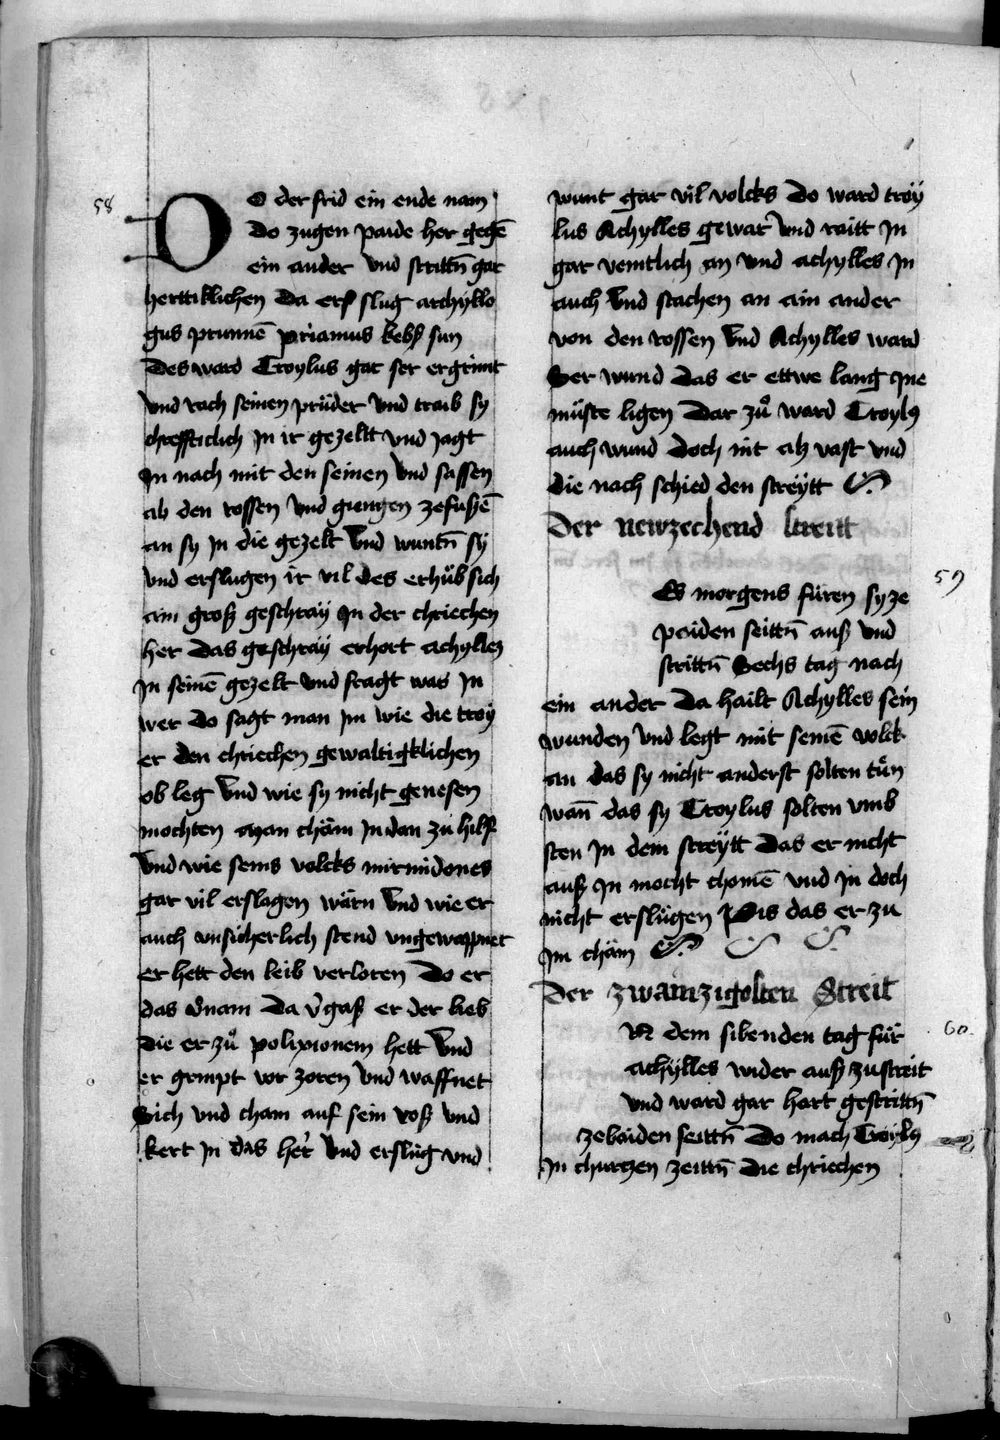 58
DO der frid ein ende nam
do zugen paide her gegē
ein ander vnd strittn̄ gar
herttiklichen da erst slug archyllo
gus prunnē priamus kebs sun
des ward Troylus gar ser ergrimt
vnd rach seinen průder vnd traib sy
chreffticlich jn ir gezeltt vnd jagt
jn nach mit den seinen vnd sassen
ab den rossen vnd giengen zefuſsē
an sy jn die gezelt vnd wuntn̄ sy
vnd erslugen ir vil des erhůb sich
ain groß geschray jn der chriechen
her das geschray erhort achylles
jn seinē gezelt vnd fragt was jn
wer do sagt man jm wie die troy
er den chriechen gewaltigklichen
ob leg vnd wie sy nicht genesen
mochten man chäm jn dan zu hilf
vnd wie seins volcks mirmidones
gar vil erslagen wärn vnd wie er
auch vnsicherlich stend vngewappnet
er hett den leib verloren do er
das v̊nam da v̊gaß er der lieb
die er zů polixionem hett vnd
er grimpt vor zoren vnd waffnet
Sich vnd cham auf sein roß vnd
kert jn das her vnd erslůg vnd
wunt gar vil volcks do ward troy
lus Achylles gewar vnd raitt jn
gar veintlich an vnd achylles jn
auch vnd stachen an ain ander
von den rossen vnd Achylles ward
Ser wund das er ettwe lang jne
můste ligen dar zů ward Troyl9
auch wund doch nit als vast vnd
die nach schied den streytt
Der newzechend streitt
59
Es morgens füren sy ze
paiden seittn̄ auß vnd
strittn̄ Sechs tag nach
ein ander da hailt Achylles sein
wunden vnd legt mit seinē volck
an das sy nicht anderst solten tůn
wan̄ das sy Troylus solten vmb
sten jn dem streytt das er nicht
auß jn mocht chomē vnd jn doch
nicht erslůgen Pis das er zu
jm chäm
Der zwainzigosten Streit
60.
N dem sibenden tag fůr
achylles wider auß zu streit
vnd ward gar hart gestrittn̄
zebaiden seittn̄ do mach Troyl9
jn churczen zeittn̄ die chriechen